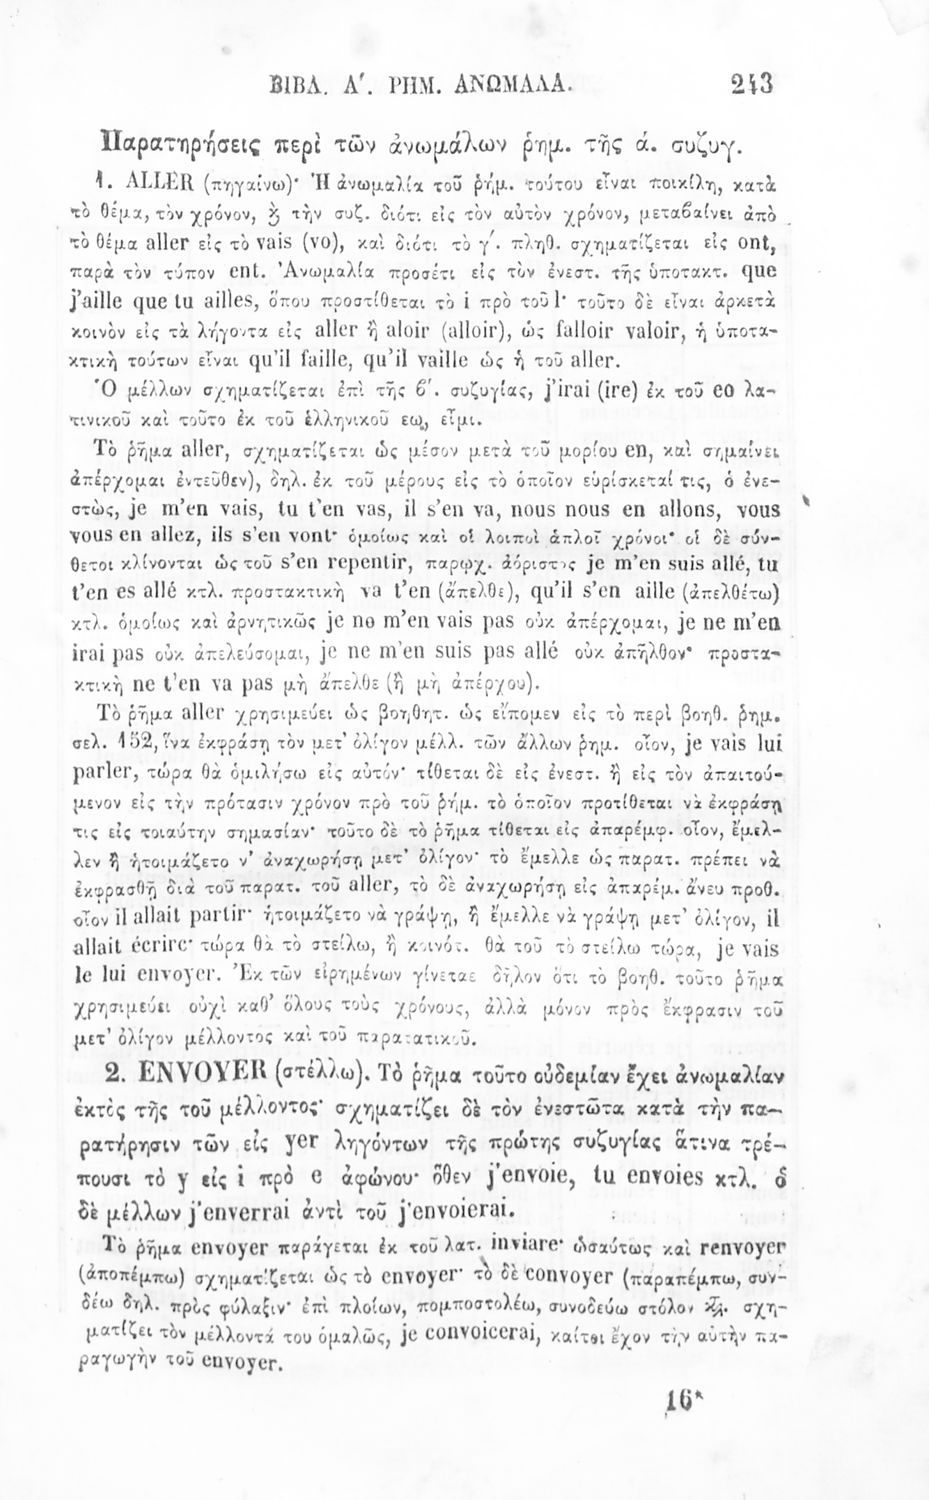 ΒΙΒΛ. Α΄. ΡΗΜ. ΑΝΩΜΑΛΑ. 243
Παρατηρήσεις περὶ τῶν ἀνωμάλων ῥημ. τῆς ά. συζυγ.
1. ALLER (πηγαίνω)· Ἡ ἀνωμαλία τοῦ ῥήμ. τούτου εἶναι ποικίλη, κατὰ
τὸ θέμα, τὸν χρόνον, ϗ τὴν συζ. διότι εἰς τὸν αὐτὸν χρόνον, μεταβαίνει ἀπὸ
τὸ θέμα aller εἰς τὸ vais (vo), καὶ διότι τὸ γ΄. πληθ. σχηματίζεται εἰς ont,
παρὰ τὸν τύπον ent. Ἀνωμαλία προσέτι εἰς τὸν ἐνεστ. τῆς ὑποτακτ. que
j'aille que tu ailles, ὅπου προστίθεται τὸ i πρὸ τοῦ l· τοῦτο δὲ εἶναι ἀρκετὰ
κοινὸν εἰς τὰ λήγοντα εἰς aller ἢ aloir (alloir), ὡς falloir valoir, ἡ ὑποτα-
κτικὴ τούτων εἶναι qu'il faille, qu'il vaille ὡς ἡ τοῦ aller.
Ὁ μέλλων σχηματίζεται ἐπὶ τῆς ϐ΄. συζυγίας, j'irai (ire) ἐκ τοῦ eo λα-
τινικοῦ καὶ τοῦτο ἐκ τοῦ ἑλληνικοῦ εω, εἶμι.
Τὸ ῥῆμα aller, σχηματίζεται ὡς μέσον μετὰ τοῦ μορίου en, καὶ σημαίνει
ἀπέρχομαι ἐντεῦθεν), δηλ. ἐκ τοῦ μέρους εἰς τὸ ὁποῖον εὑρίσκεταί τις, ὁ ἐνε-
στὼς, je m'en vais, tu t'en vas, il s'en va, nous nous en allons, vous
vous en allez, ils s'en vont· ὁμοίως καὶ οἱ λοιποὶ ἁπλοῖ χρόνοι· οἱ δὲ σύν-
θετοι κλίνονται ὡς τοῦ s'en repentir, παρῳχ. ἀόριστος je m'en suis allé, tu
t'en es allé κτλ. προστακτικὴ va t'en (ἄπελθε), qu'il s'en aille (ἀπελθέτω)
κτλ. ὁμοίως καὶ ἀρνητικῶς je ne m'en vais pas οὐκ ἀπέρχομαι, je ne m'en
irai pas οὐκ ἀπελεύσομαι, je ne m'en suis pas allé οὐκ ἀπῆλθον· προστα-
κτικὴ ne t'en va pas μὴ ἄπελθε (ἢ μὴ ἀπέρχου).
Τὸ ῥῆμα aller χρησιμεύει ὡς βοηθητ. ὡς εἴπομεν εἰς τὸ περὶ βοηθ. ῥημ.
σελ. 152, ἵνα ἐκφράσῃ τὸν μετ' ὀλίγον μέλλ. τῶν ἄλλων ῥημ. οἷον, je vais lui
parler, τώρα θὰ ὁμιλήσω εἰς αὐτόν· τίθεται δὲ εἰς ἐνεστ. ἢ εἰς τὸν ἀπαιτού-
μενον εἰς τὴν πρότασιν χρόνον πρὸ τοῦ ῥήμ. τὸ ὁποῖον προτίθεται νὰ ἐκφράσῃ
τις εἰς τοιαύτην σημασίαν· τοῦτο δὲ τὸ ῥῆμα τίθεται εἰς ἀπαρέμφ. οἷον, ἔμελ-
λεν ἢ ἡτοιμάζετο ν' ἀναχωρήσῃ μετ' ὀλίγον· τὸ ἔμελλε ὡς παρατ. πρέπει νὰ
ἐκφρασθῇ διὰ τοῦ παρατ. τοῦ aller, τὸ δὲ ἀναχωρήσῃ εἰς ἀπαρέμ. ἄνευ προθ.
οἷον il allait partir· ἡτοιμάζετο νὰ γράψῃ, ἢ ἔμελλε νὰ γράψῃ μετ' ὀλίγον, il
allait écrire· τώρα θὰ τὸ στείλω, ἢ κοινότ. θὰ τοῦ τὸ στείλω τώρα, je vais
le lui envoyer. Ἐκ τῶν εἰρημένων γίνεται δῆλον ὅτι τὸ βοηθ. τοῦτο ῥῆμα
χρησιμεύει οὐχὶ καθ' ὅλους τοὺς χρόνους, ἀλλὰ μόνον πρὸς ἔκφρασιν τοῦ
μετ' ὀλίγον μέλλοντος καὶ τοῦ παρατατικοῦ.
2. ENVOYER (στέλλω). Τὸ ῥῆμα τοῦτο οὐδεμίαν ἔχει ἀνωμαλίαν
ἐκτὸς τῆς τοῦ μέλλοντος· σχηματίζει δὲ τὸν ἐνεστῶτα κατὰ τὴν πα-
ρατήρησιν τῶν εἰς yer ληγόντων τῆς πρώτης συζυγίας ἅτινα τρέ-
πουσι τὸ y εἰς i πρὸ e ἀφώνου· ὅθεν j'envoie, tu envoies κτλ. ὁ
δὲ μέλλων j'enverrai ἀντὶ τοῦ j'envoierai.
Τὸ ῥῆμα envoyer παράγεται ἐκ τοῦ λατ. inviare· ὡσαύτως καὶ renvoyer
(ἀποπέμπω) σχηματίζεται ὡς τὸ envoyer· τὸ δὲ convoyer (παραπέμπω, συν-
δέω δηλ. πρὸς φύλαξιν· ἐπὶ πλοίων, πομποστολέω, συνοδεύω στόλον κτλ. σχη-
ματίζει τὸν μέλλοντά του ὁμαλῶς, je convoicerai, καίτοι ἔχον τὴν αὐτὴν πα-
ραγωγὴν τοῦ envoyer.
16*